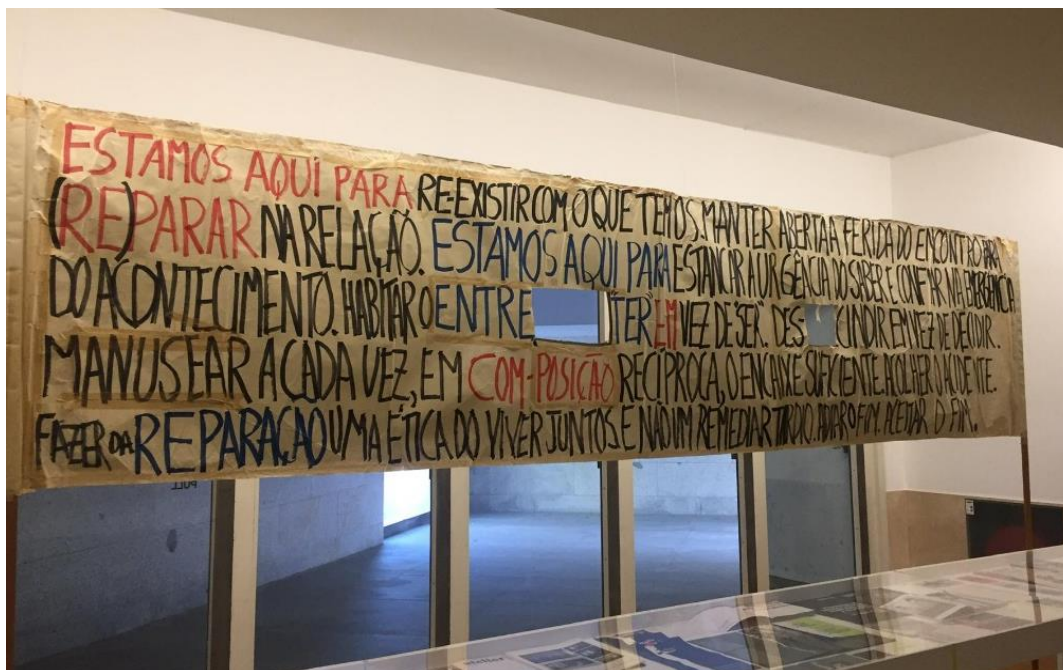 ESTAMOS AQUI PARA RE-EXISTIR COM O QUE TEMOS. MANTER ABERTA A FERIDA DO ENCONTRO PARA
(RE)PARAR NA RELAÇÃO. ESTAMOS AQUI PARA ESTANCAR A URGÊNCIA DO SABER E CONFIAR NA EMERGÊNCIA
DO ACONTECIMENTO. HABITAR O ENTRE, "TER" EM VEZ DE "SER". DES CINDIR EM VEZ DE DECIDIR.
MANUSEAR A CADA VEZ, EM COM-POSIÇÃO RECÍPROCA, O ENCAIXE SUFICIENTE. ACOLHER O ACIDENTE.
FAZER DA REPARAÇÃO UMA ÉTICA DO VIVER JUNTOS E NÃO UM REMEDIAR TARDIO. ADIAR O FIM. ACEITAR O FIM.
PULL
atelier